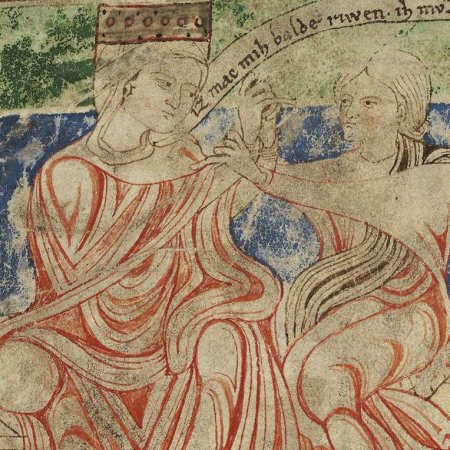 ez mac mih balde riwen. ih